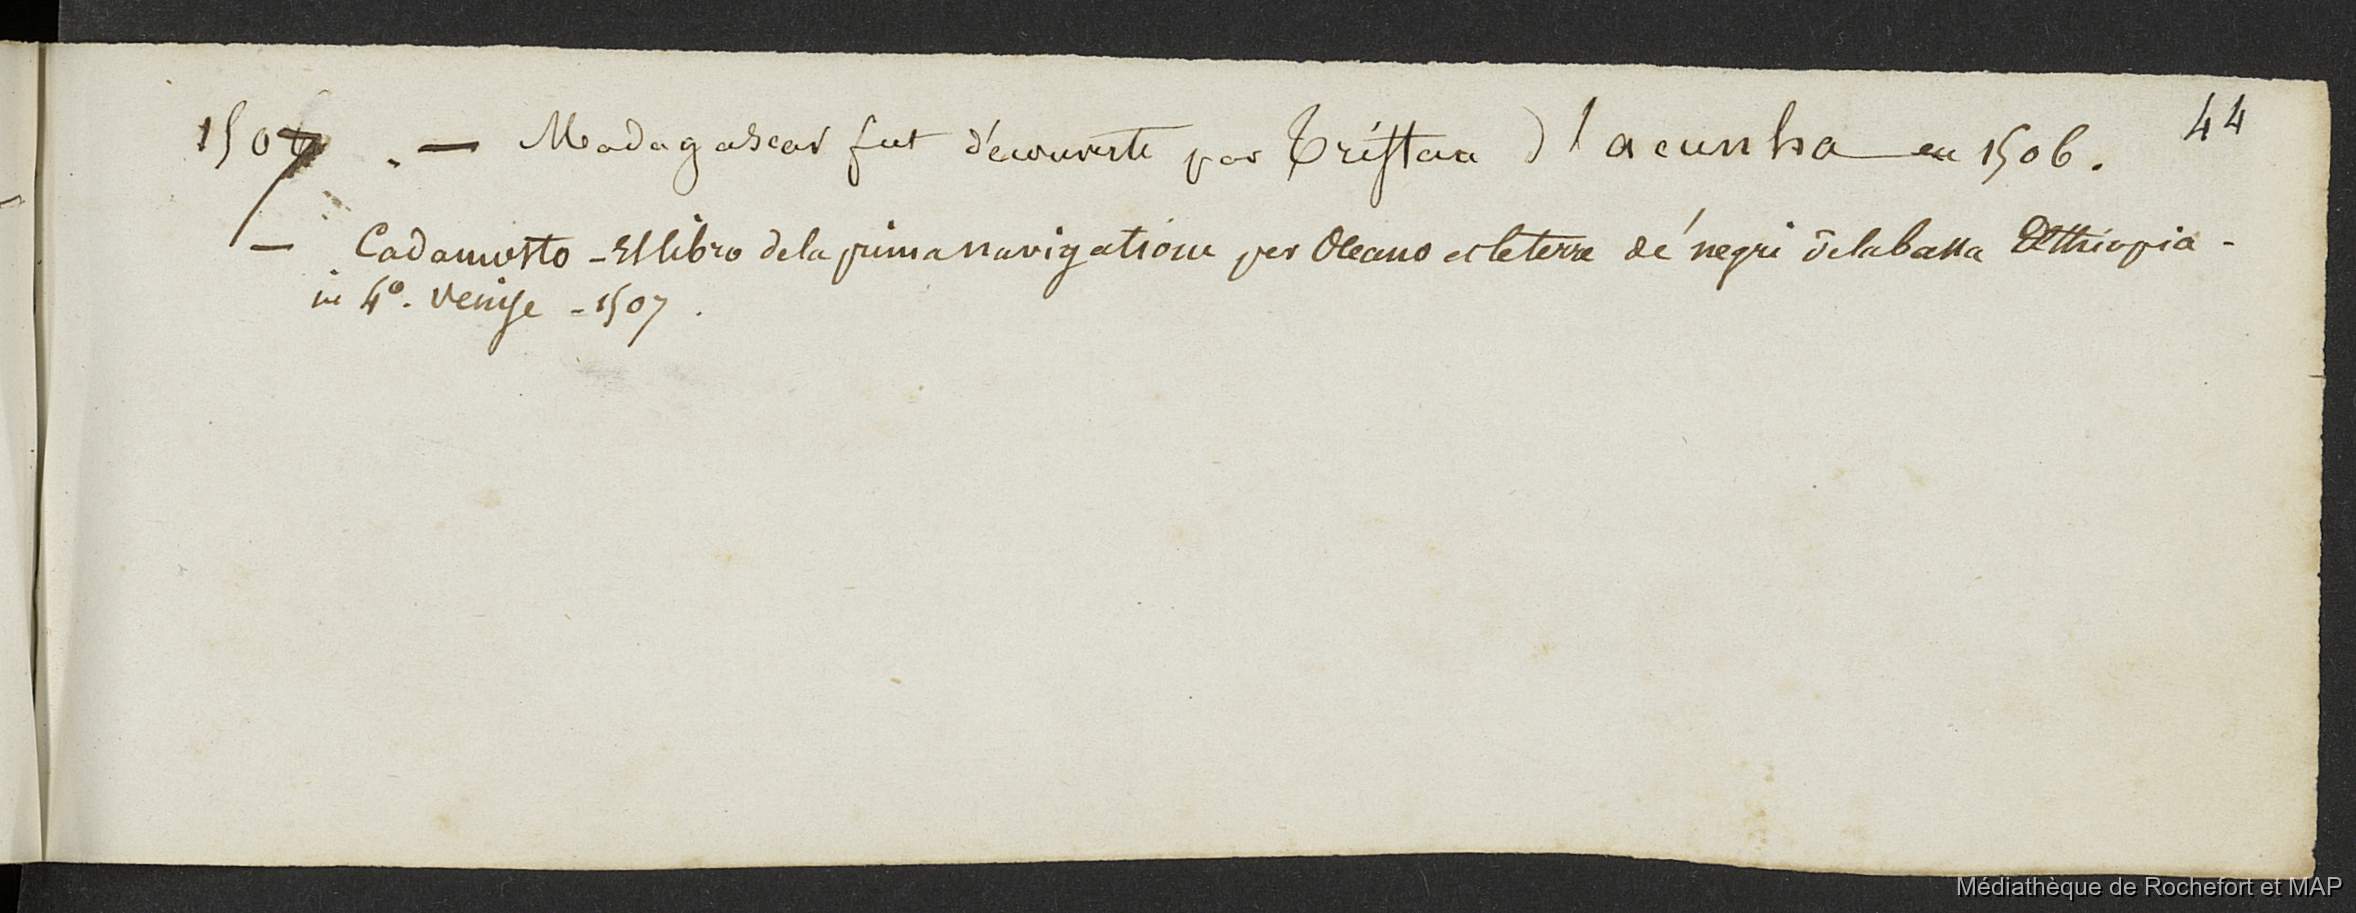 44
1507 . — Madagascar fut découverte par Tristan d'acunha en 1506.
— Cadamosto - El libro dela prima navigatione per Oceano et le terre de' negri dela bassa Ethiopia -
in 4°. Venise - 1507 .
Médiathèque de Rochefort et MAP